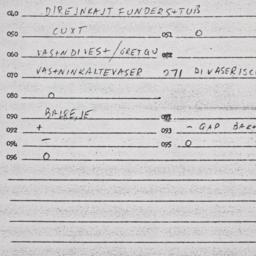 040 DIREJNKAJT FUNDERSTUB
050 CUXT 051 0
060 VAS+NDIVES+/GRETGU
070 VAS+NINKALTEVASER 071 DIVASERISC
080 0
090 BALSEJE
092 + 093 - GAP BAR+
094 - 095 0
096 0